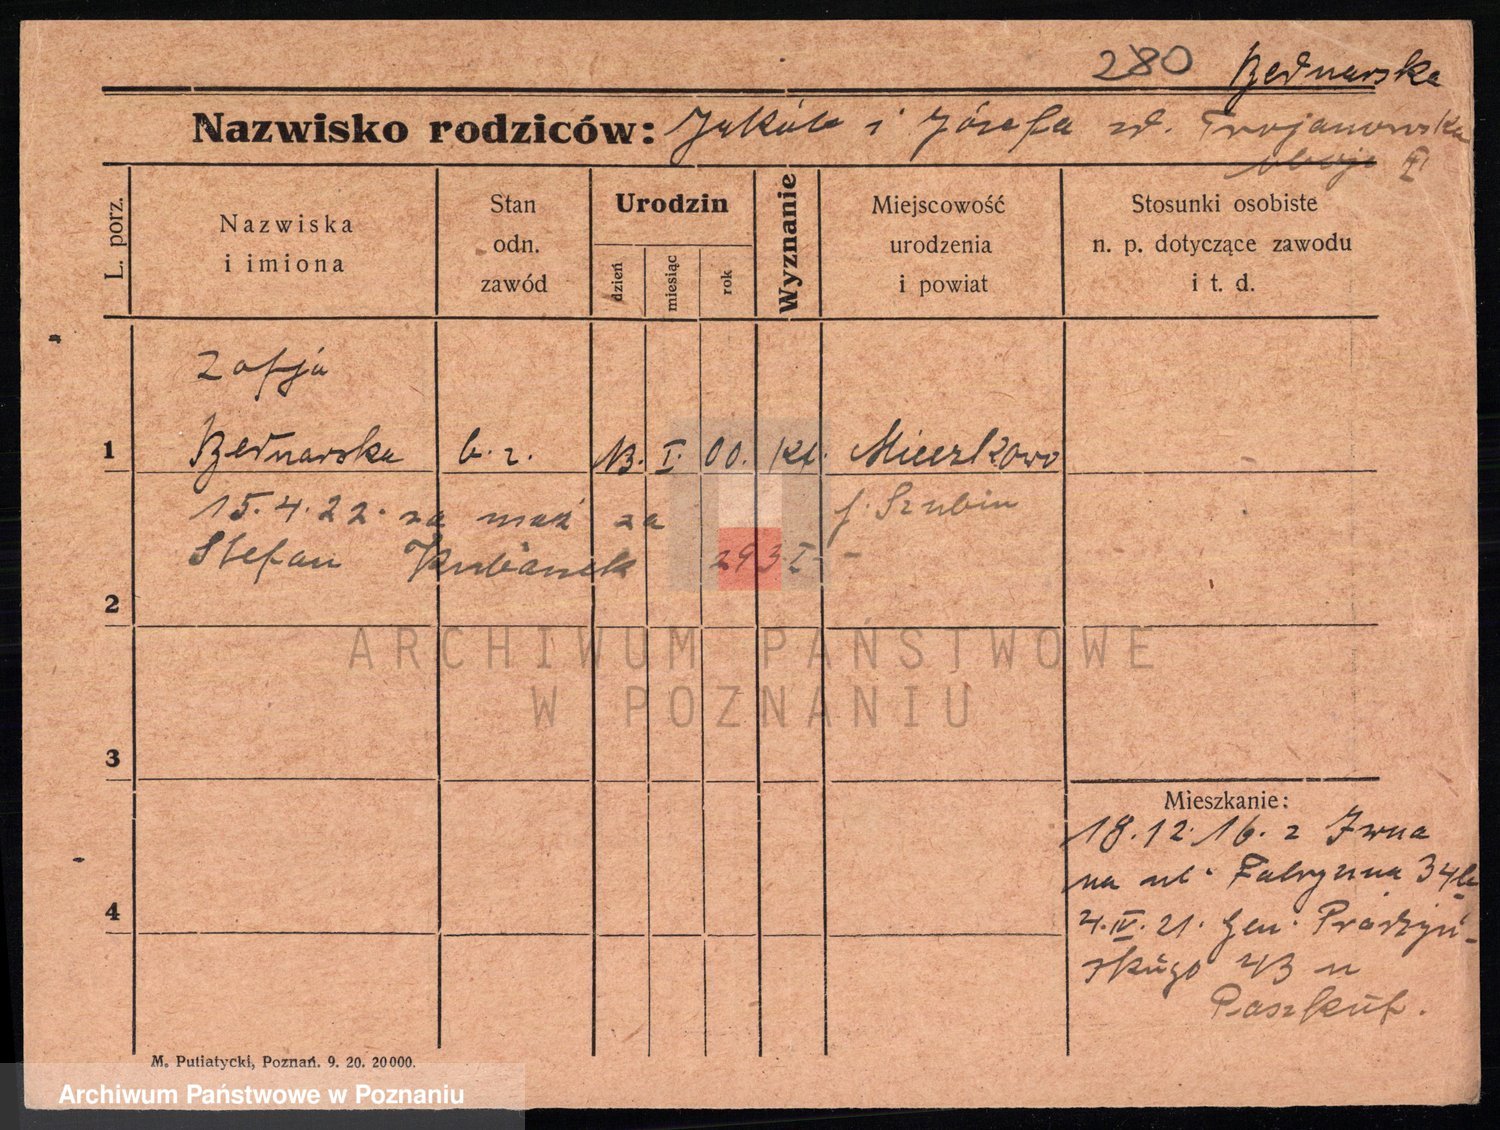 280 Bednarska
Nazwisko rodziców: Jakób i Józefa zd. Trojanowska
oboje
L. porz.
Nazwiska
i imiona
Stan
odn.
zawód
Urodzin
dzień
miesiąc
rok
Wyznanie
Miejscowość
urodzenia
i powiat
Stosunki osobiste
n. p. dotyczące zawodu
i t. d.
Zofja
1 Bednarska b. z. 13. I. 00. kt. Mieczkowo
15. 4. 22. za mąż za p. Szubin
Stefan Kubanek 293 I -
2
3
4
Mieszkanie:
18. 12. 16. z
na ul. Fabryczna 34
4. IV. 21. Gen. Prądzyń-
skiego 43 u
M. Putiatycki, Poznań. 9. 20. 20000.
ARCHIWUM PAŃSTWOWE
W POZNANIU
Archiwum Państwowe w Poznaniu